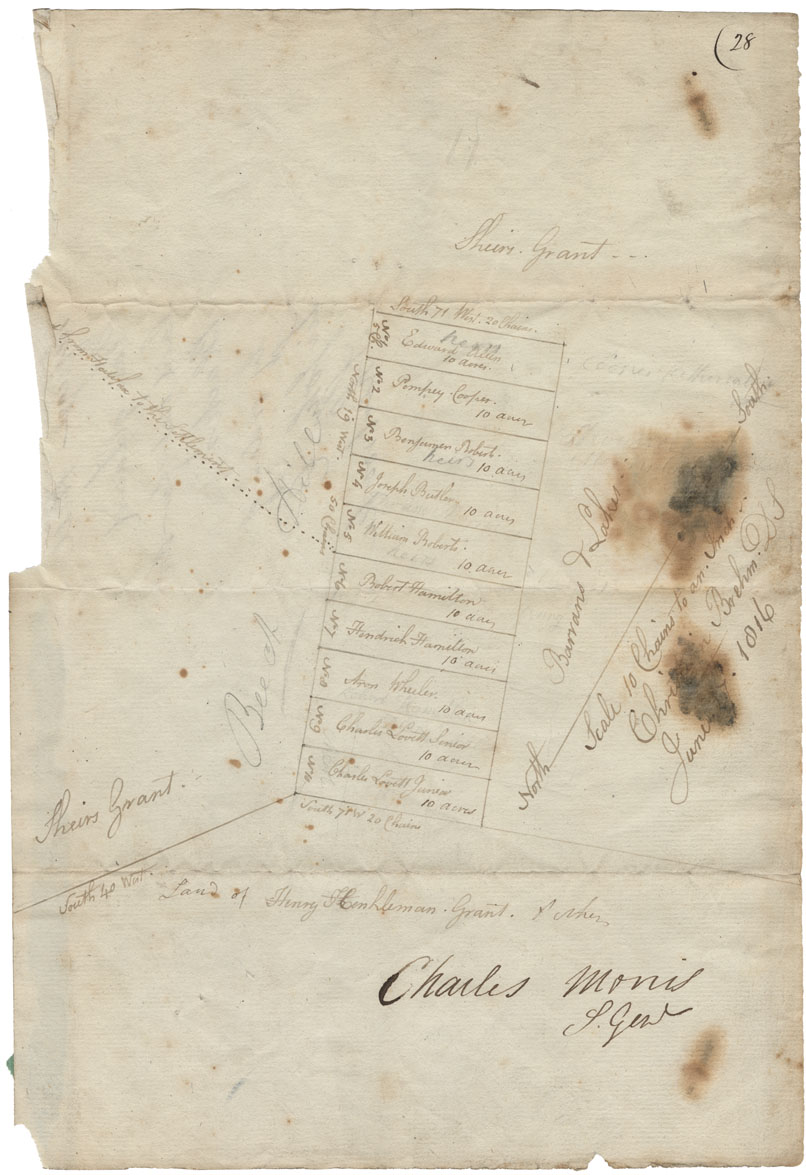 (28
Sheirs Grant - - -
South 71 West 20 Chains.
No 1
Edward
10 acres.
No 2
Pompey Cooper.
10 acres
No 3
Benjamen Robert.
10 acres
No 4
Joseph Butler
10 acres
No 5
William Roberts.
10 acres
No 6
Robert Hamilton
10 acres
No 7
Hendrich Hamilton
10 acres
No 8
Aron Wheeler.
10 acres
No 9
Charles Lovett Senior
10 acres
No 10
Charles Lovett Junior
10 acres
South 71 W 20 Chains
North 19 West 50 Chains
from Halifax to the Settlement
Beech Hill
Barrans & Lakes.
North
South.
Scale 10 Chains to an Inch.
Brehm. DS
June 1816
Sheirs Grant.
South 40 West.
Land of Henry Grant. &
Charles Morris
S. Genl